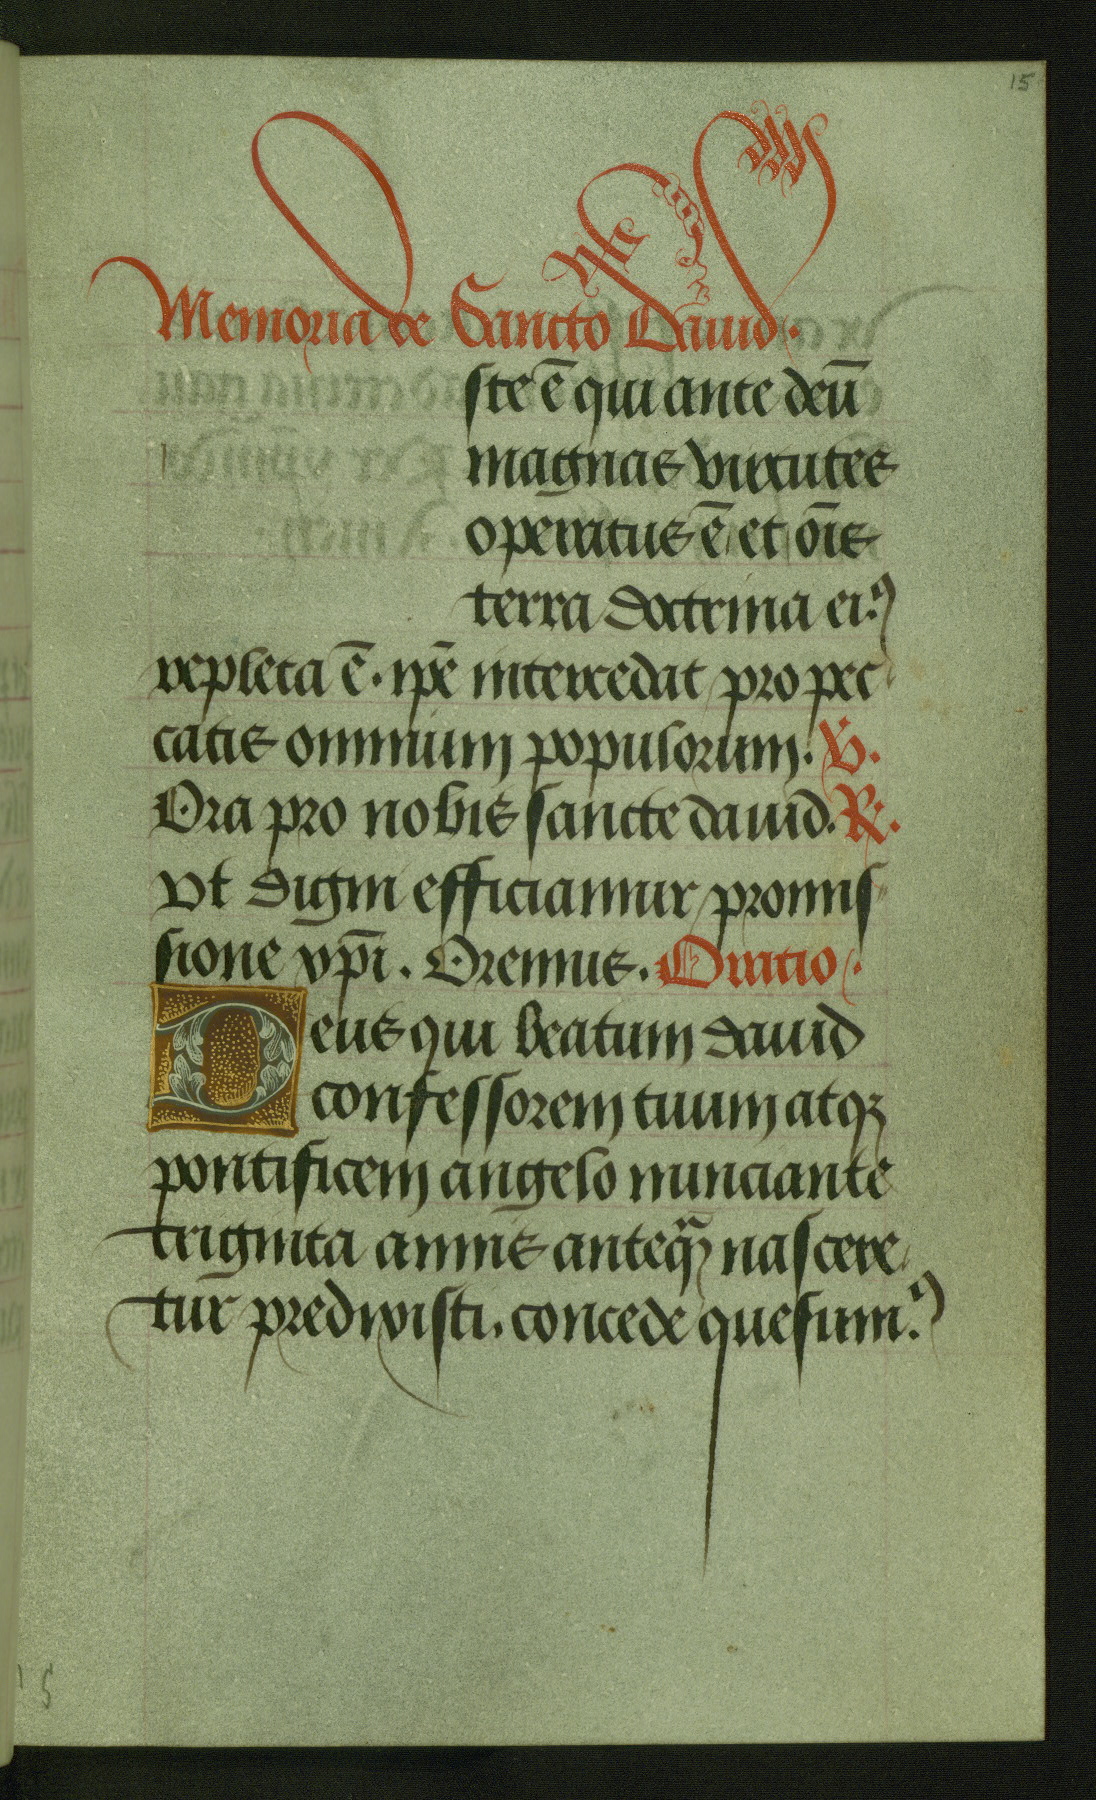 15
Memoria de Sancto David.
ste ē qui ante deū
magnas virtutes
operatus ē et oīs
terra doctrina eiꝰ
repleta ē. ip̄e intercedat pro pec
catis omnium populorum. ℣.
Ora pro nobis sancte david. ℟.
Vt digni efficiamur promis
sione xp̄i. Oremus. Oratio.
Deus qui beatum david
confessorem tuum atqꝫ
pontificem angelo nunciante
triginta annis anteqꝫ nascere
tur predixisti. concede quesumꝰ